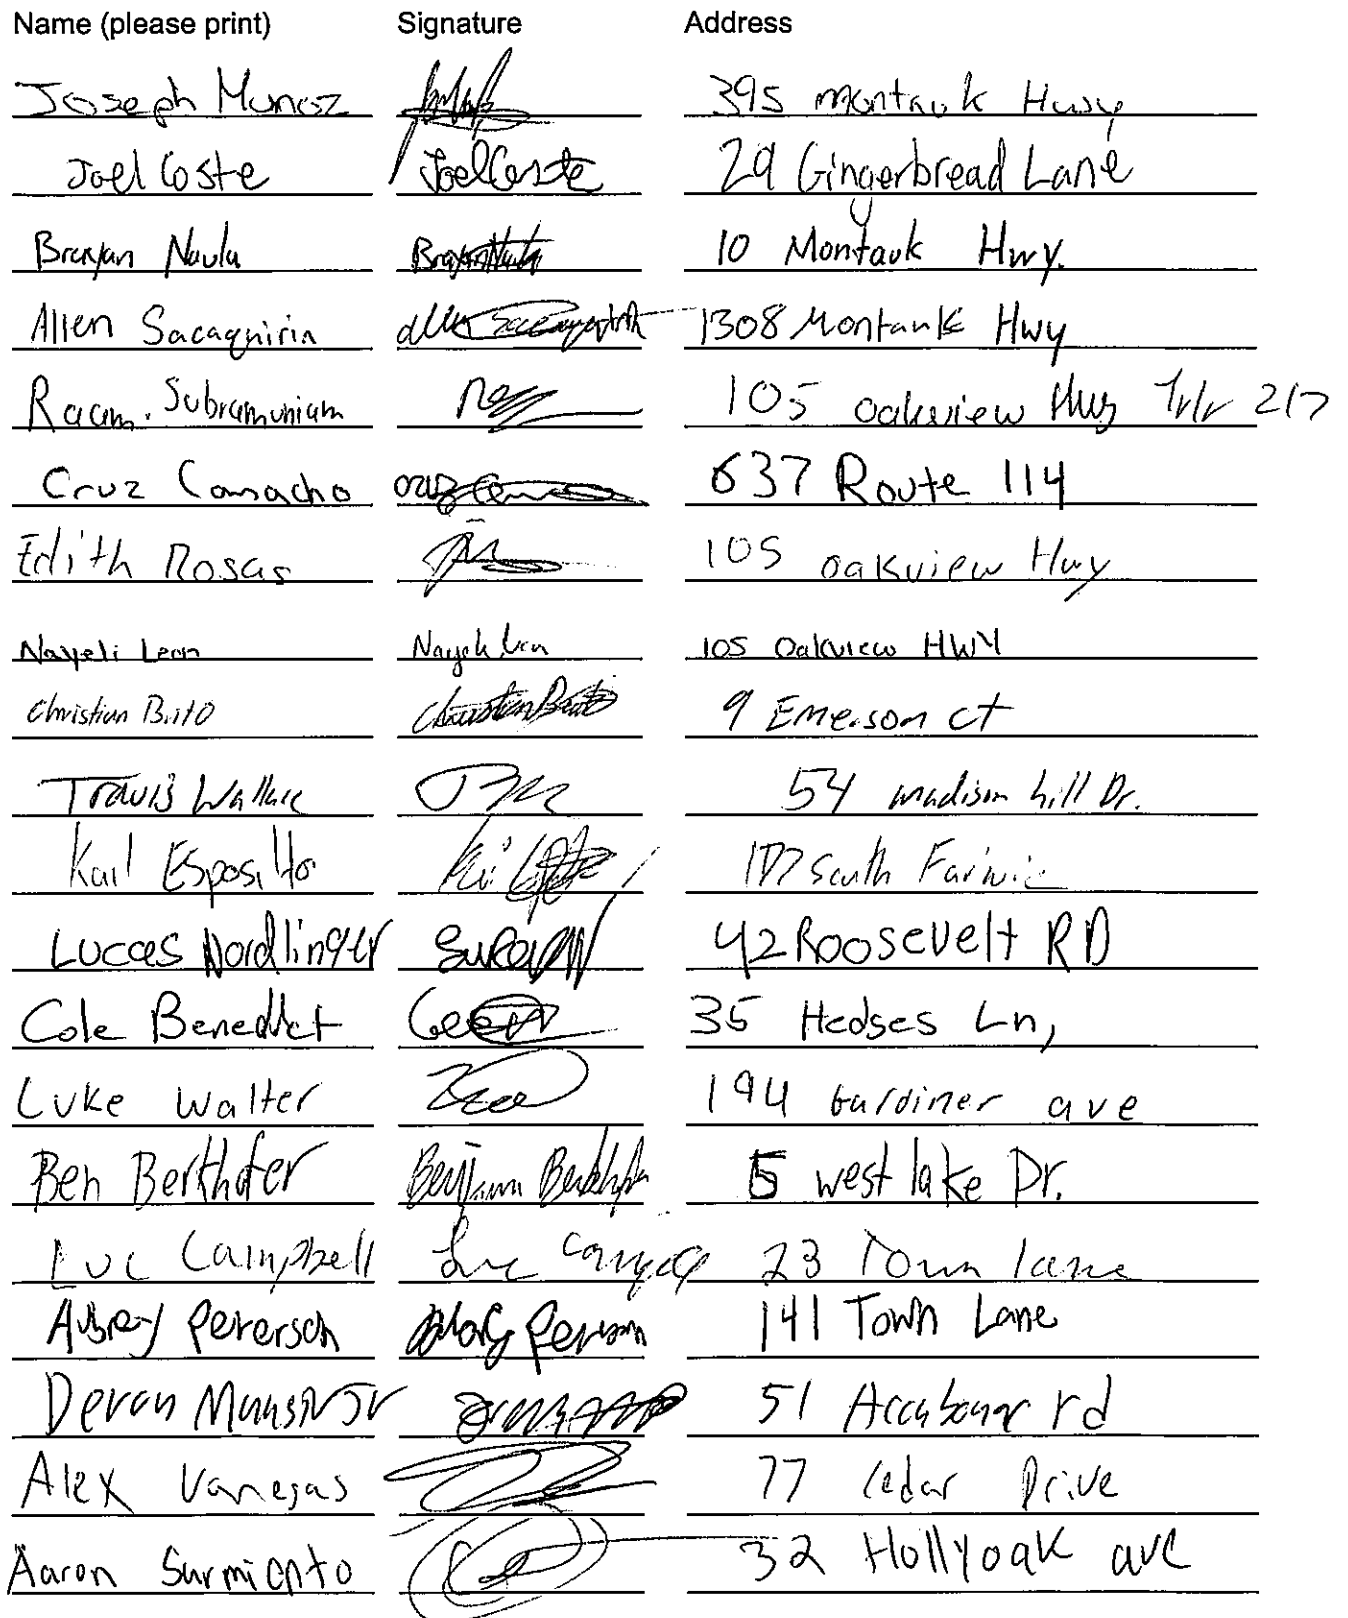 Name (please print) Signature Address
Joseph Munoz 395 Montauk Hwy
Joel Coste Joel Coste 29 Gingerbread Lane
Brayan Naula Brayan Naula 10 Montauk Hwy.
Allen Sacaquirin 1308 Montauk Hwy
Raam. Subramuniam 105 oakview Hwy Trlr 217
Cruz Camacho Cruz 637 Route 114
Edith Rosas 105 oakview Hwy
Nayeli Leon Nayeli Leon 105 Oakview HWY
Christian Brito Christian Brito 9 Emerson ct
Travis Wallace 54 madison hill Dr.
Kail Esposito 177 South
Luccas Nordlinger 42 Roosevelt RD
Cole Benedict 35 Hedges Ln,
Luke Walter 194 Gardiner ave
Ben Berthofer Benjamin 5 west lake Dr.
Luc Campbell Luc 23 Town lane
Aubrey Peterson 141 Town Lane
Devon Jr 51 Accabonac rd
Alex Vanegas 77 Cedar Drive
Aaron Sarmiento 32 Hollyoak ave